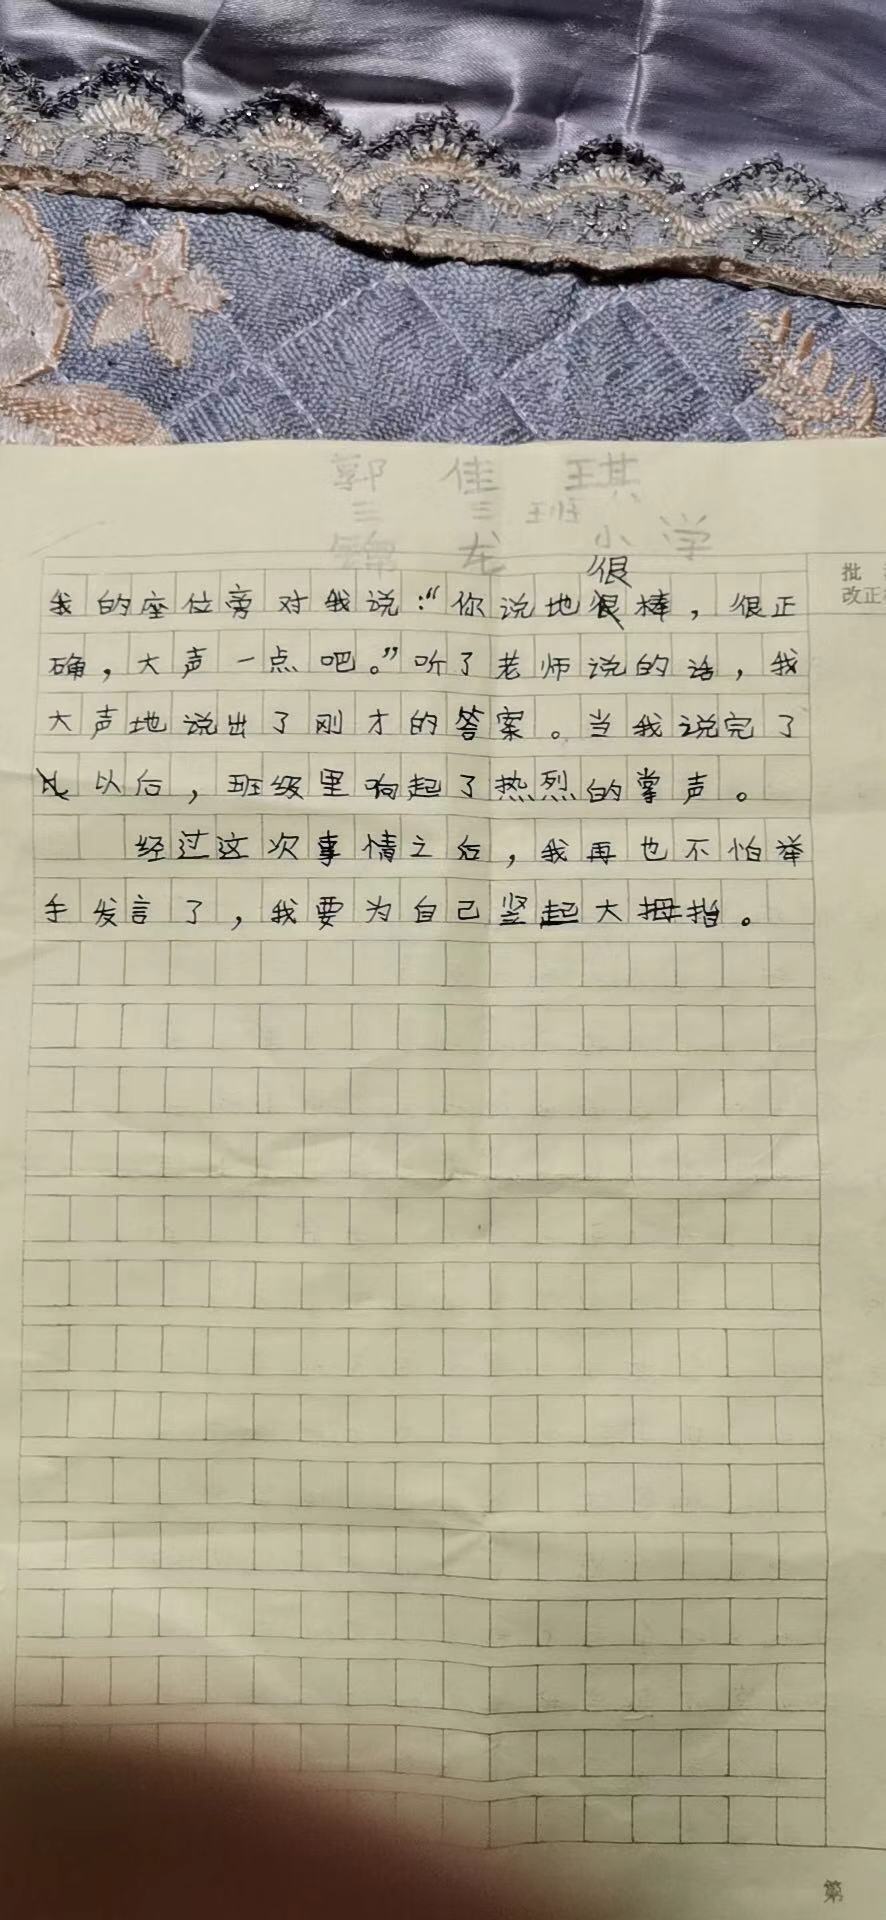 郭佳琪
三三班
锦龙小学
很
我的座位旁对我说：“你说地很棒，很正
确，大声一点吧。”听了老师说的话，我
大声地说出了刚才的答案。当我说完了
以后，班级里响起了热烈的掌声。
经过这次事情之后，我再也不怕举
手发言了，我要为自己竖起大拇指。
批
改正
第